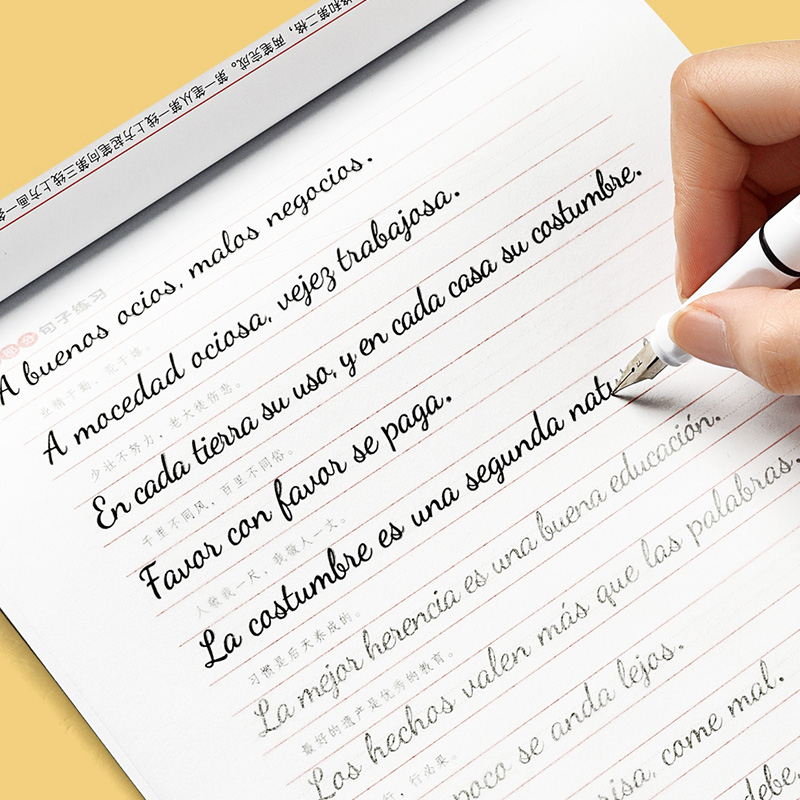 格和第二格，两笔完成。第一笔从第一线上方起笔向第三线上方画一条
部分 句子练习
A buenos ocios, malos negocios.
业精于勤，荒于嬉。
A mocedad ociosa, vejez trabajosa.
少壮不努力，老大徒伤悲。
En cada tierra su uso, y en cada casa su costumbre.
千里不同风，百里不同俗。
Favor con favor se paga.
人敬我一尺，我敬人一丈。
La costumbre es una segunda natu
习惯是后天养成的。
La mejor herencia es una buena educación.
最好的遗产是优秀的教育。
Los hechos valen más que las palabras.
行，行必果。
poco se anda lejos.
isa, come mal.
debe,